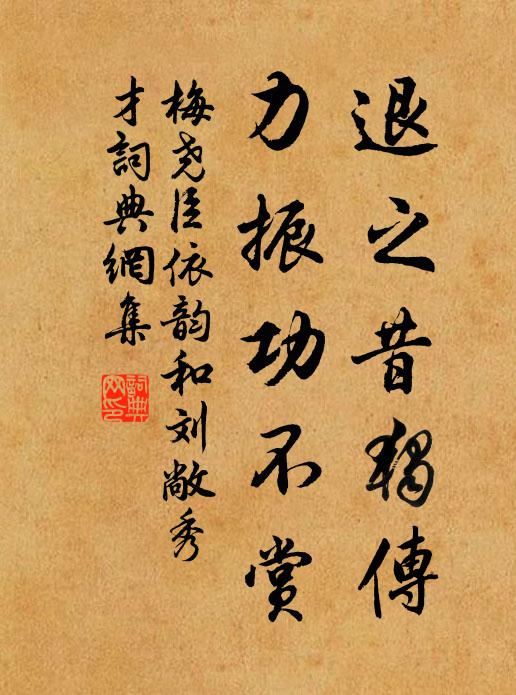 退之昔獨傳
力振功不賞
梅尧臣依韵和刘敞秀
才詞典網集
詞典
网印